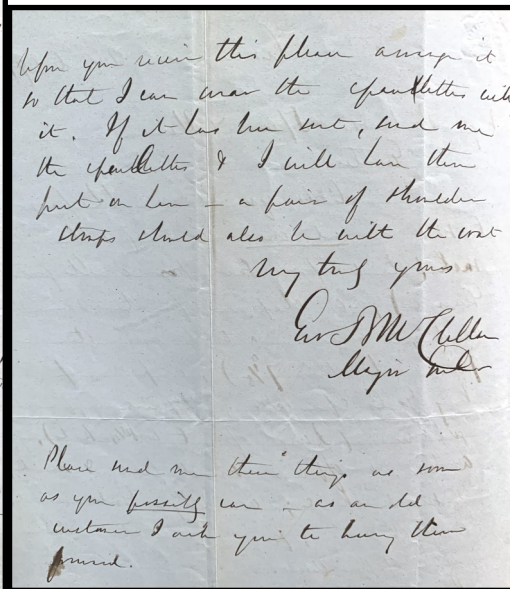 before you receive this please arrange it
so that I can wear the epaulettes with
it. If it has been sent, send me
the epaulettes & I will have them
put on here – a pair of shoulder
straps should also be with the coat
Very truly yours
Geo B McClellan
Major Genl
Please send me these things as soon
as you possibly can – as an old
customer I ask you to hurry them
forward.